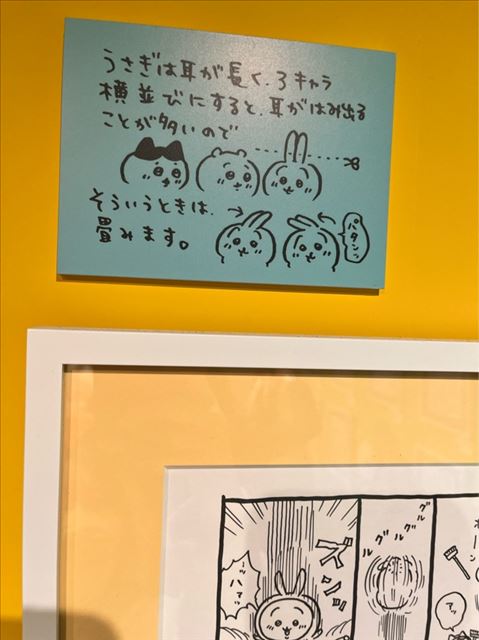 うさぎは耳が長く、3キャラ
横並びにすると、耳がはみ出る
ことが多いので
そういうときは、
畳みます。
パタンッ
ズンッ
ーッ
ハァッ
グル
グル
グル
ァッ